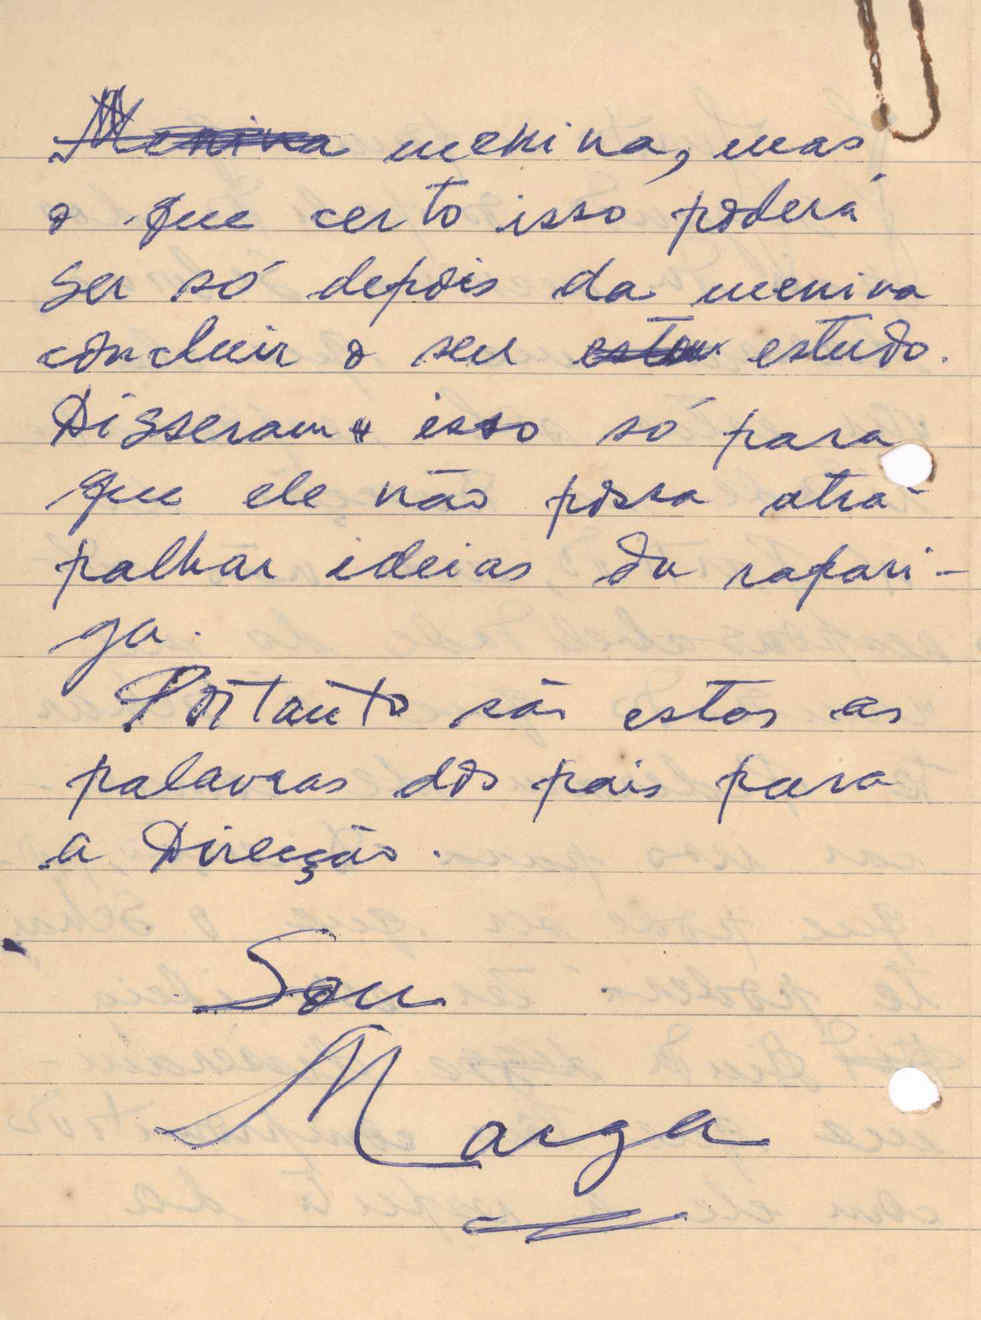 Menina menina, mas
o que certo isso poderá
ser só depois da menina
concluir o seu estou estudo.
Disseram isso só para
que ele não possa atra-
palhar ideias da rapari-
ga.
Portanto são estas as
palavras dos pais para
a Direcção.
Sou
Marga